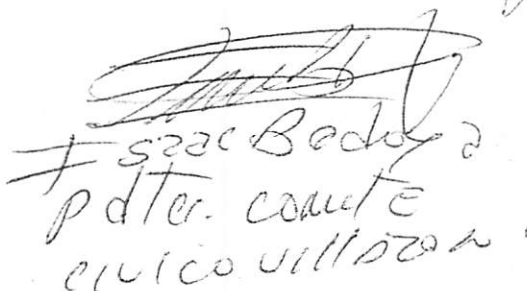 Isaac Bedoya
Pdte. comite
civico villazon